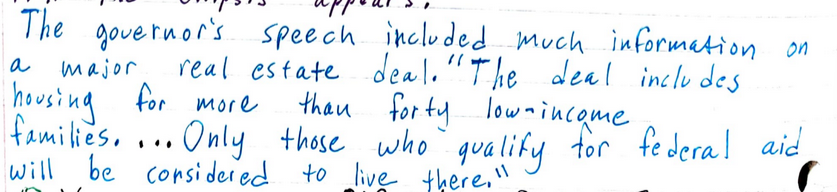 appears.
The governor's speech included much information on
a major real estate deal. "The deal includes
housing for more than forty low-income
families. ... Only those who qualify for federal aid
will be considered to live there."